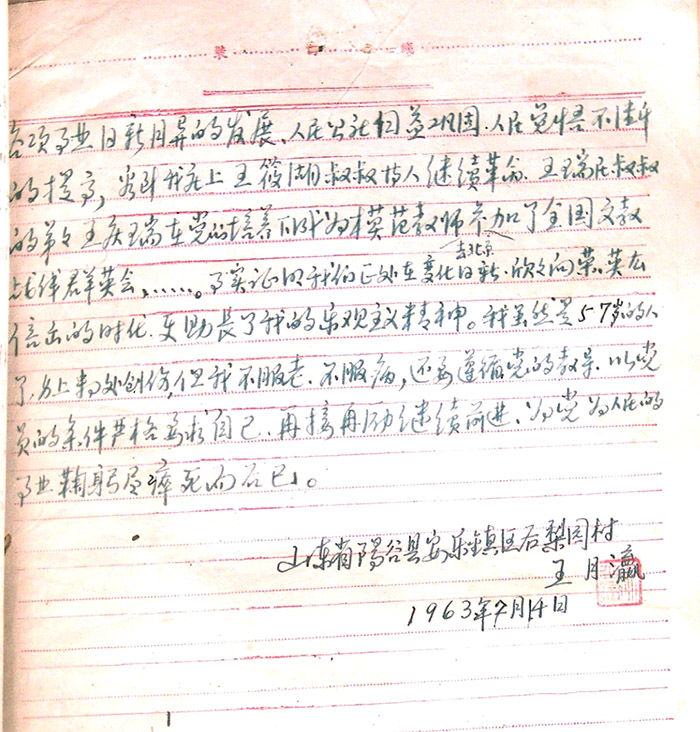 裝 訂 綫
各项事业日新月异的发展、人民公社日益巩固.人民觉悟不断
的提高，我庄上王筱湖叔叔 人继续革命.王瑞民叔叔
的 王庆瑞在党的培养下成为模范教师参加了全国文教
去北京
战线群英会，……。事实证明我们正处在变化日新、欣欣向荣、英才
倍出的时代.更助长了我的乐观主义精神。我虽然是57岁的人
了，身上 处创伤，但我不服老.不服病，还要遵循党的教导.以党
员的条件严格要求自己.再接再励继续前进.为党为人民的
事业鞠躬尽瘁死而后已。
山东省陽谷县安乐镇区后梨园村
王月瀛
1963年7月14日